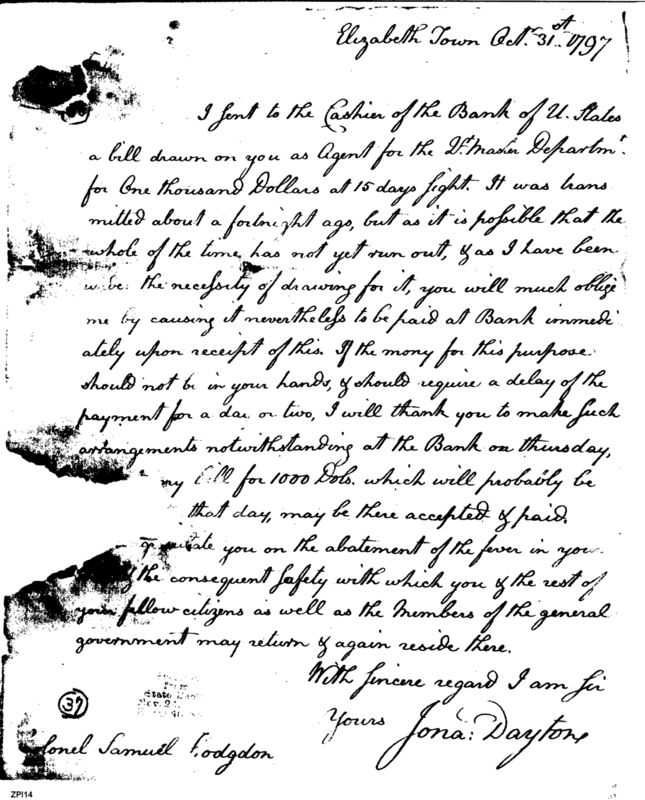 Elizabeth Town Octr. 31st. 1797
I sent to the Cashier of the Bank of U. States
a bill drawn on you as Agent for the Qr. Master Departmt.
for One thousand Dollars at 15 days sight. It was trans
mitted about a fortnight ago, but as it is possible that the
whole of the time has not yet run out, & as I have been
the necessity of drawing for it, you will much oblige
me by causing it nevertheless to be paid at Bank immedi
ately upon receipt of this. If the mony for this purpose
should not be in your hands, & should require a delay of the
payment for a day or two, I will thank you to make such
arrangements notwithstanding at the Bank on thursday,
my bill for 1000 Dols. which will probably be
that day, may be there accepted & paid.
you on the abatement of the fever in your
the consequent safety with which you & the rest of
your fellow citizens as well as the Members of the general
government may return & again reside there.
With sincere regard I am Sir
Yours
Jona: Dayton
37
State
lonel Samuel Hodgdon
ZPI14